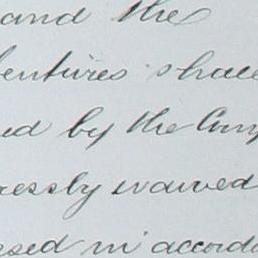 and the
entures shall
ed by the Com
ressly waived
sed in accorda